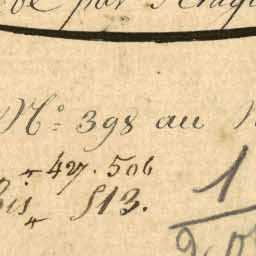 par
N° 398 au
427. 506
bis 513.
1